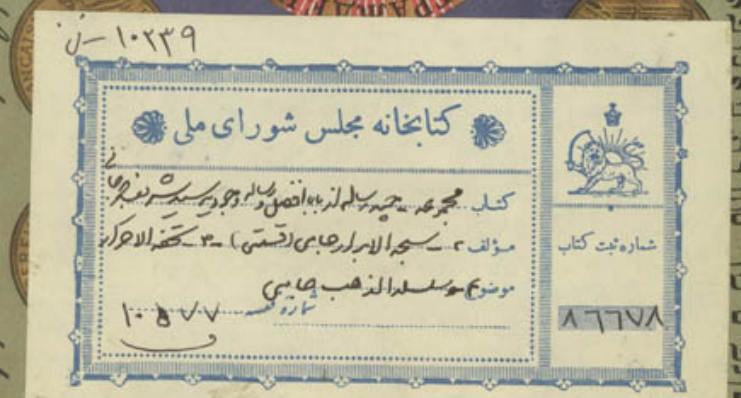 ۱۰۲۳۹ - ن
کتابخانه مجلس شورای ملی
کتاب مجموعه - چند رساله از بابا افضل و رساله وجودیه میر سید شریف جرجانی
مؤلف ۲ - سبحه الابرار جامی (قسمتی) - ۳ - تحفه الاحرار
موضوع ۴ - سلسله الذهب جامی
شماره قفسه ۱۰۵۷۷
شماره ثبت کتاب
۸۶۶۷۸